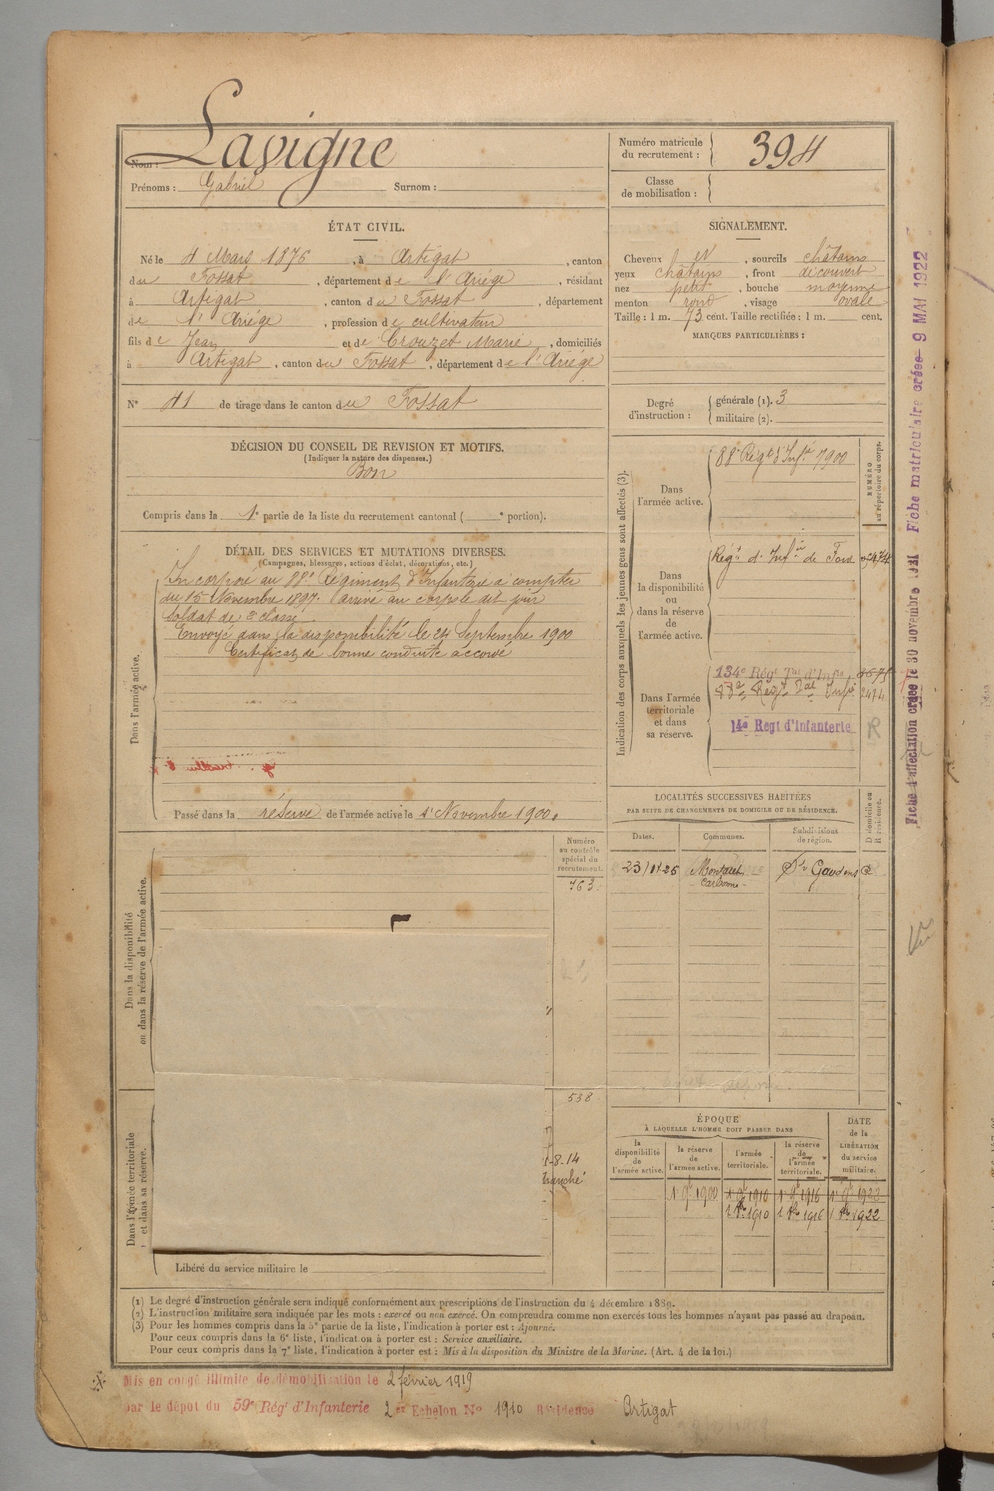 Nom : Lavigne
Prénoms : Gabriel Surnom :
Numéro matricule du recrutement : 394
Classe de mobilisation :
ÉTAT CIVIL.
Né le 4 Mars 1876, à Artigat, canton
du Fossat, département de l'Ariège, résidant
à Artigat, canton du Fossat, département
de l'Ariège, profession de cultivateur
fils de Jean et de Crouzet Marie, domiciliés
à Artigat, canton du Fossat, département de l'Ariége
N° 41 de tirage dans le canton du Fossat
SIGNALEMENT.
Cheveux et, sourcils châtains
yeux châtains, front découvert
nez petit, bouche moyenne
menton rond, visage ovale
Taille : 1 m. 73 cent. Taille rectifiée : 1 m. cent.
MARQUES PARTICULIÈRES :
Degré d'instruction :
générale (1). 3
militaire (2).
DÉCISION DU CONSEIL DE REVISION ET MOTIFS.
(Indiquer la nature des dispenses.)
Bon
Compris dans la 1e partie de la liste du recrutement cantonal ( e portion).
DÉTAIL DES SERVICES ET MUTATIONS DIVERSES.
(Campagnes, blessures, actions d'éclat, décorations, etc.)
Dans l'armée active.
Incorporé au 88e Régiment d'Infanterie a compter
du 15 Novembre 1897. arrivé au corps le dit jour
soldat de 2e classe.
Envoyé dans la disponibilité le 24 Septembre 1900
Certificat de bonne conduite accordé
Passé dans la réserve de l'armée active le 1er Novembre 1900.
Indication des corps auxquels les jeunes gens sont affectés (3).
NUMÉRO au répertoire du corps.
Dans l'armée active.
88e Régt d'Infie 7900
Dans la disponibilité ou dans la réserve de l'armée active.
Régt d'Infie de Foix
Dans l'armée territoriale et dans sa réserve.
134e Régt Tal d'Infie
Régt Tal Infie 2414
14e Regt d'Infanterie R
LOCALITÉS SUCCESSIVES HABITÉES
PAR SUITE DE CHANGEMENTS DE DOMICILE OU DE RÉSIDENCE.
Dates. Communes. Subdivisions de région. D domicile ou R résidence.
Montaut St Gaudens
Carbonne
Dans la disponibilité ou dans la réserve de l'armée active.
Numéro au contrôle spécial du recrutement.
763
Dans l'armée territoriale et dans sa réserve.
538
1-8-14
Libéré du service militaire le
ÉPOQUE
À LAQUELLE L'HOMME DOIT PASSER DANS
la disponibilité de l'armée active. la réserve de l'armée active. l'armée territoriale. la réserve de l'armée territoriale.
DATE de la LIBÉRATION du service militaire.
1 9bre 1900 1 9bre 1910 1 9bre 1916 1 9bre 1922
1 8bre 1910 1 8bre 1916 1 8bre 1922
(1) Le degré d'instruction générale sera indiqué conformément aux prescriptions de l'instruction du 4 décembre 1889.
(2) L'instruction militaire sera indiquée par les mots : exercé ou non exercé. On comprendra comme non exercés tous les hommes n'ayant pas passé au drapeau.
(3) Pour les hommes compris dans la 5e partie de la liste, l'indication à porter est : Ajourné.
Pour ceux compris dans la 6e liste, l'indication à porter est : Service auxiliaire.
Pour ceux compris dans la 7e liste, l'indication à porter est : Mis à la disposition du Ministre de la Marine. (Art. 4 de la loi.)
Mis en congé illimité de démobilisation le 2 février 1919
par le dépôt du 59e Régt d'Infanterie 2e Echelon N° 1910 Résidence Artigat
Fiche d'affectation créée le 30 novembre 1921 - Fiche matriculaire créée 9 MAI 1922
Vu